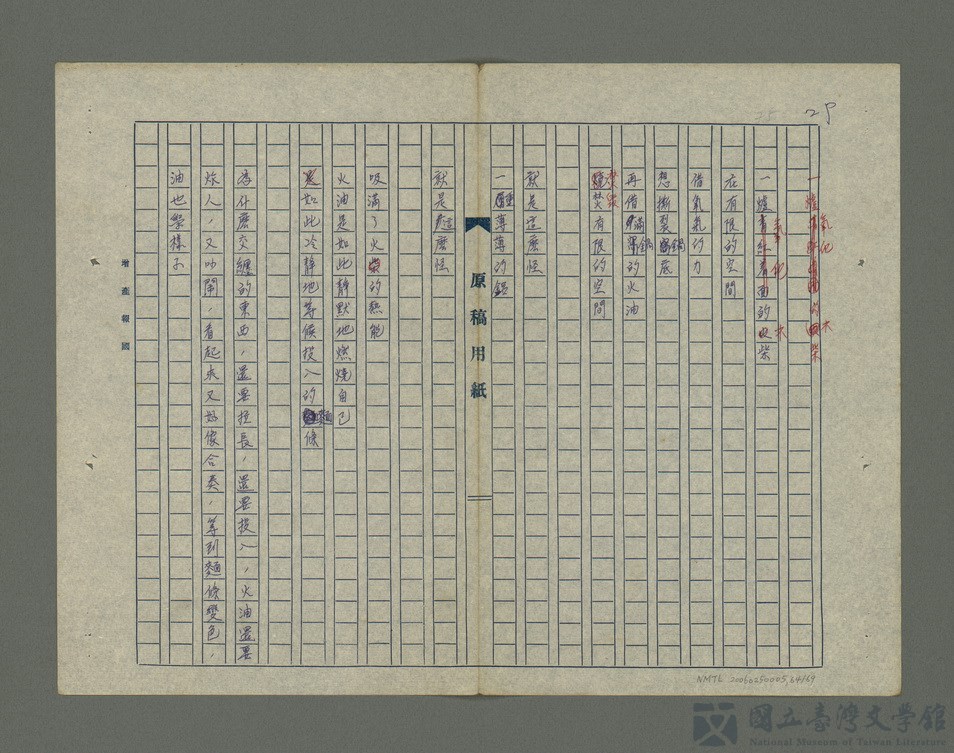 29
一爐青紅着面的柴
氧化
一爐青紅着面的柴
氧化
在有限的空間
借氧氣的力
想撕裂鍋底
再借滿鍋的火油
焚燬有限的空間
就是這麼怪
一薄薄的鍋
原稿用紙
就是這麼怪
吸滿了火的熱能
火油是如此靜默地燃燒自己
如此冷靜地等候投入的麵條
為什麼交纏的東西，還要拉長，還要投入，火油還要
炊人，又吵鬧，看起來又好像合奏，等到麵條變色，
油也變樣子
增產報國
NMTL 20050250005,64/69
國立臺灣文學館
National Museum of Taiwan Literature